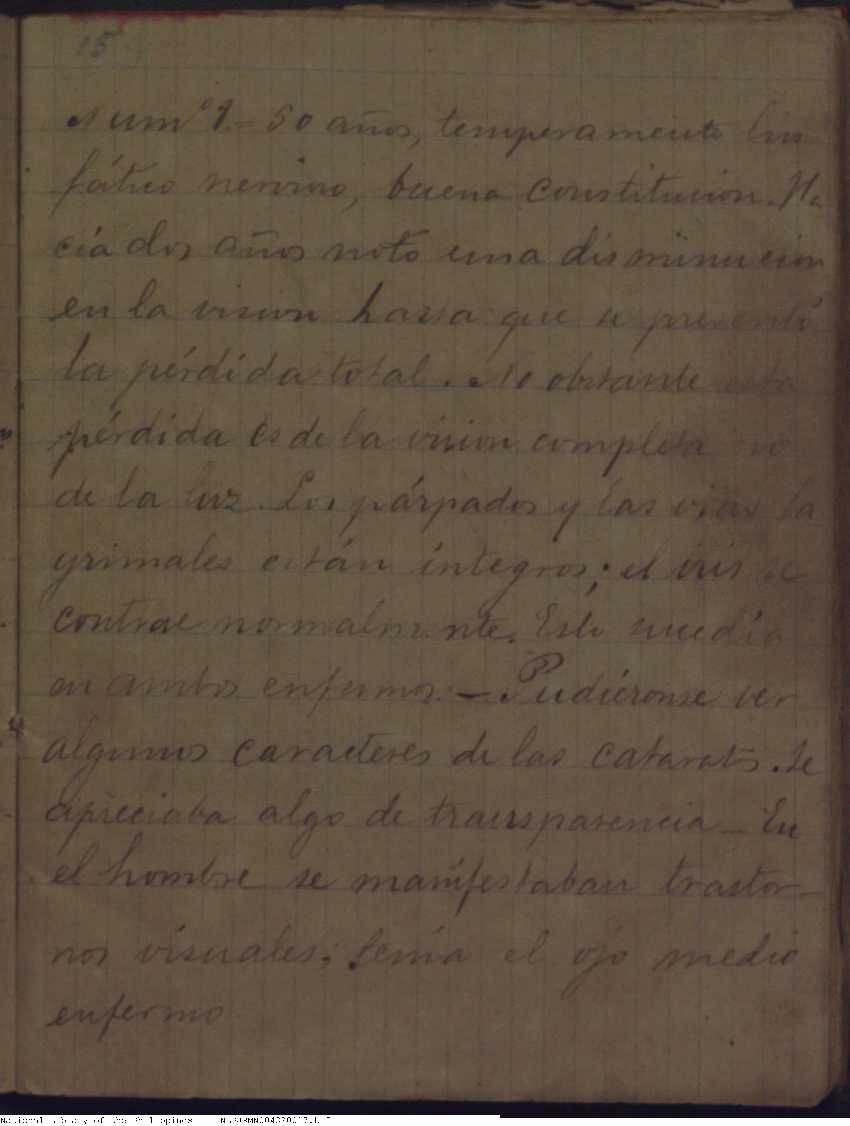 15
Numº 1.- 50 años, temperamento lin
fático nervioso, buena constitucion. Ha
cía dos años notó una disminucion
en la vision hasta que se presentó
la pérdida total. No obstante esta
pérdida es de la vision completa no
de la luz. Los párpados y las vias la
grimales están íntegros; el iris se
contrae normalmente. Esto sucedía
en ambos enfermos. - Pudiéronse ver
algunos caracteres de las cataratas. Se
apreciaba algo de transparencia - En
el hombre se manifestaban trastor-
nos visuales; tenía el ojo medio
enfermo
National Library of the Philippines